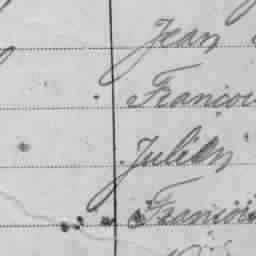 Jean
Francois
Julien
Francois